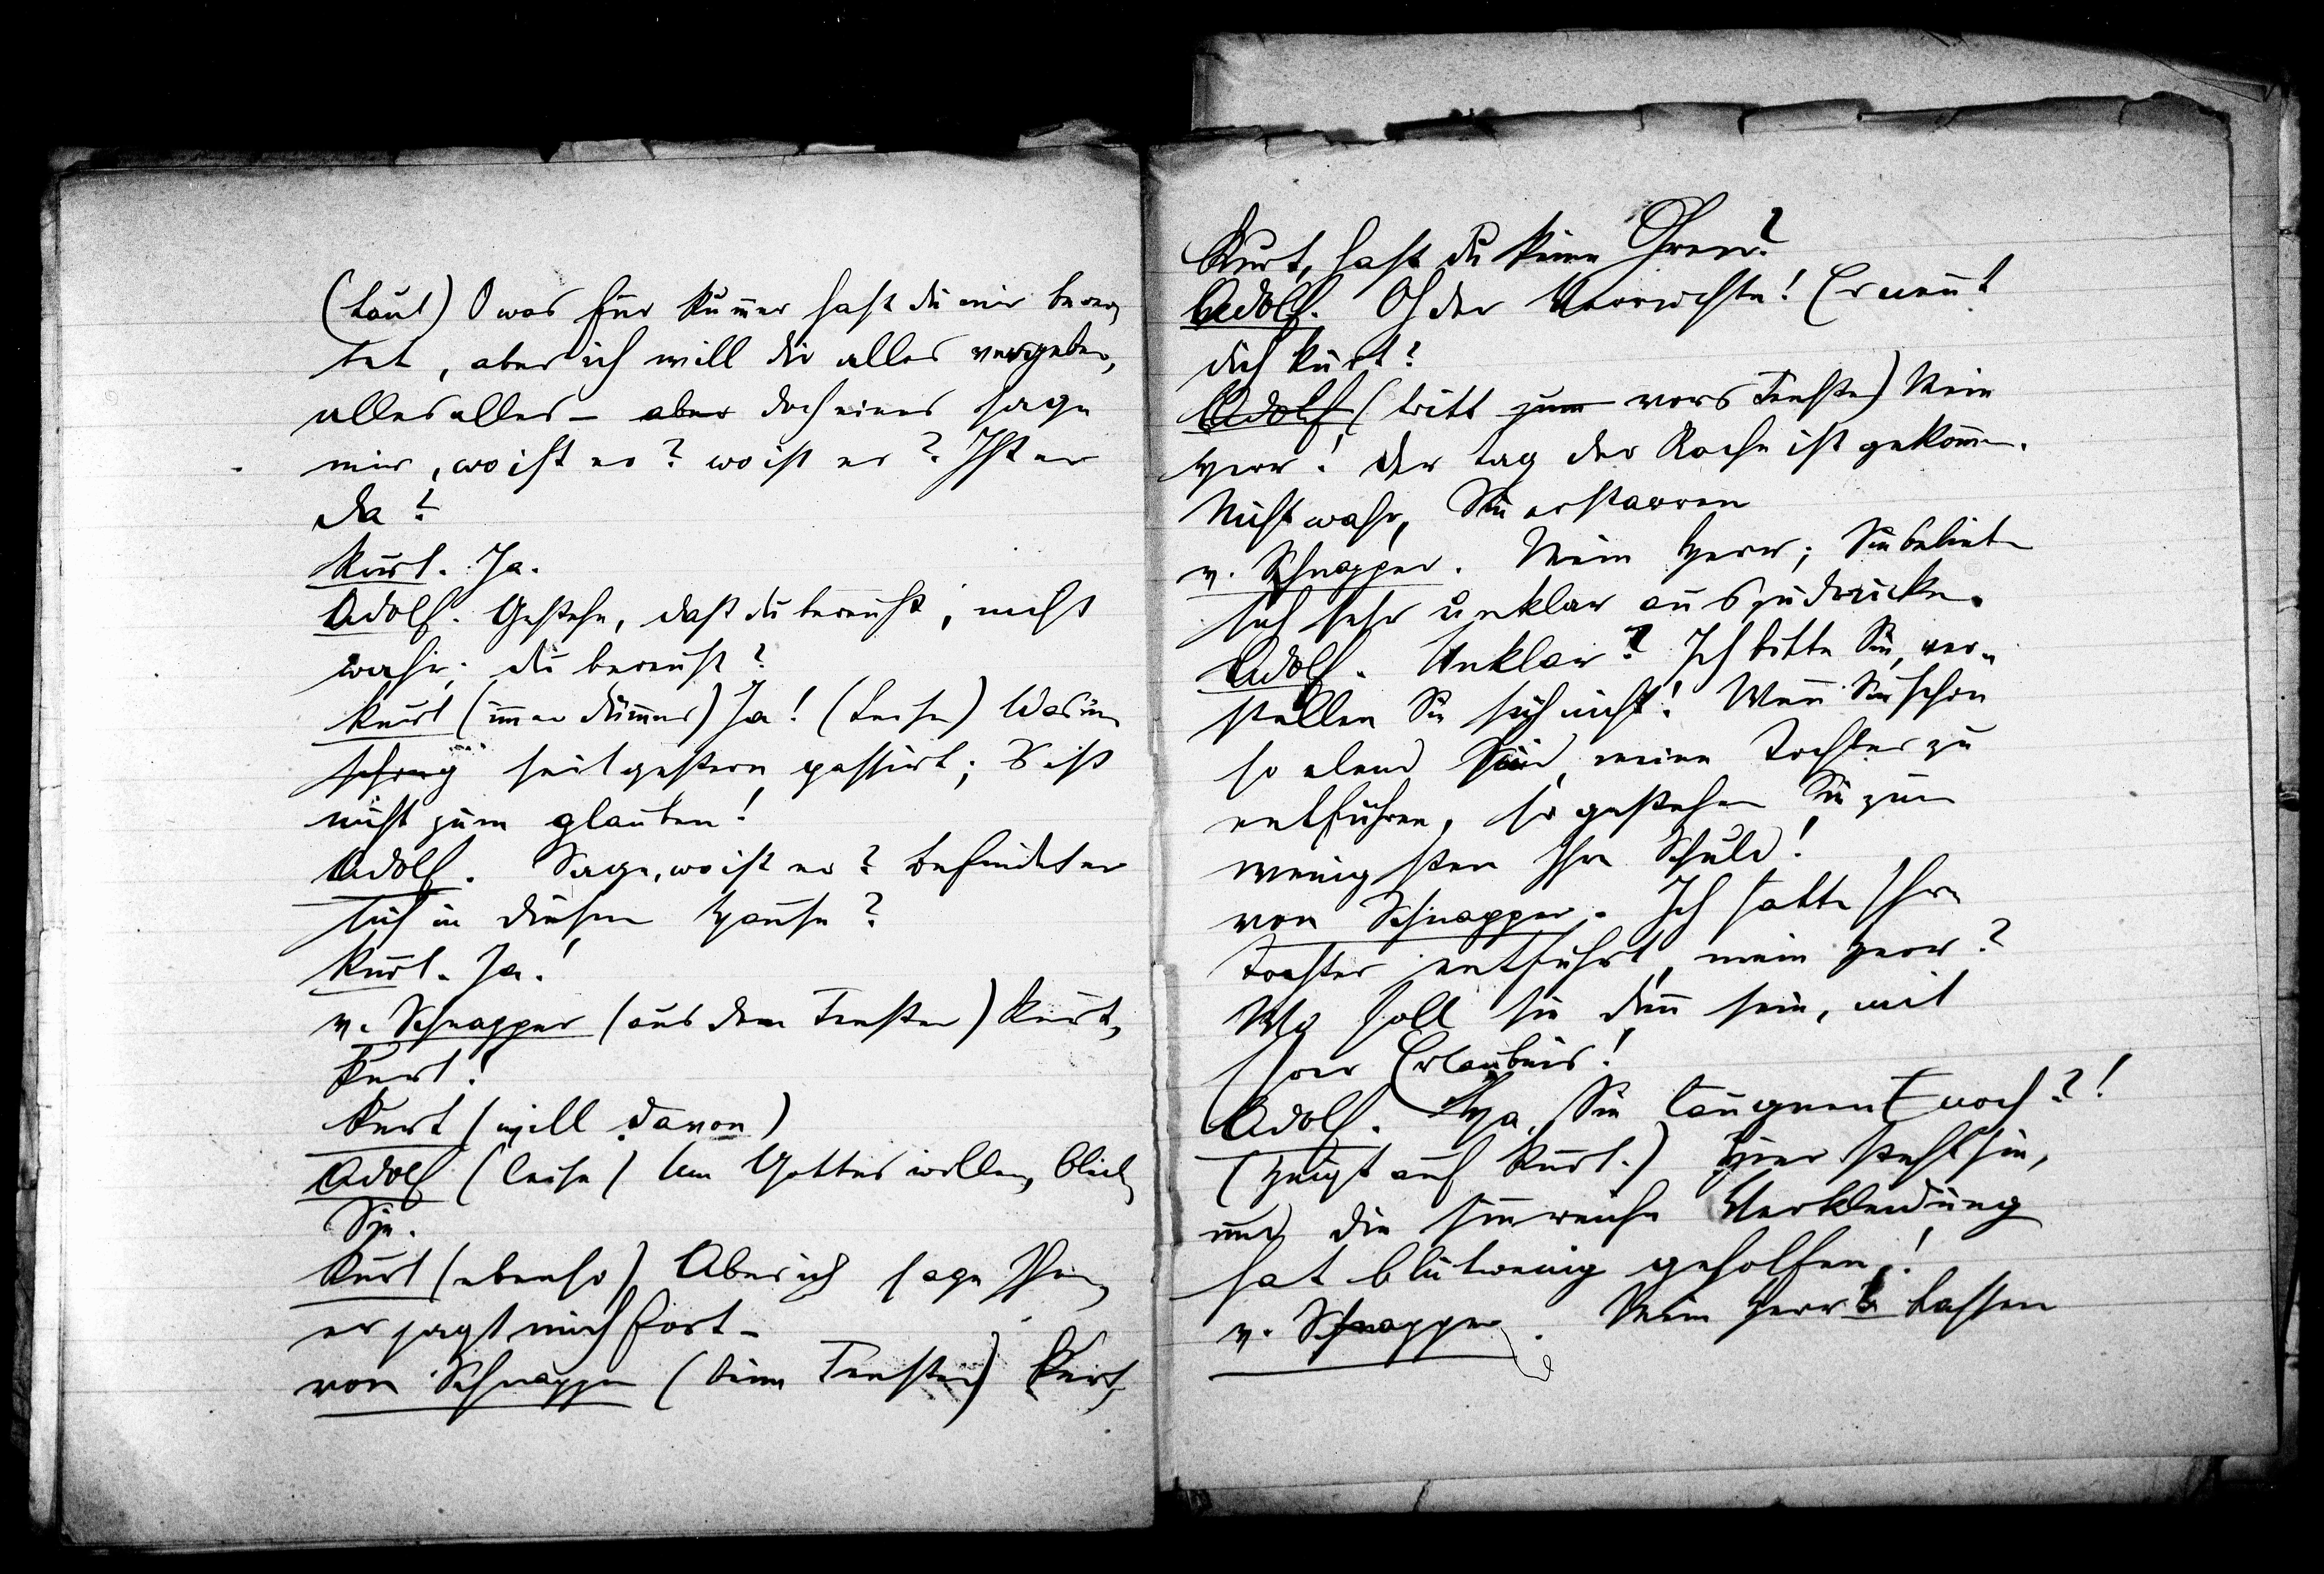 (laut) O was für Kum̄er hast du mir berei¬
tet, aber ich will dir alles vergeben,
alles alles – aber doch eines sage
mir, wo ist er? wo ist er? Ist er
da?
Kurt. Ja.
Adolf. Gestehe, dass du bereust, nicht
wahr, du bereust?
Kurt (im̄er dümmer) Ja! (Leise) Was in
seit gestern passirt; 's ist
nicht zum glauben!
Adolf. Sage, wo ist er? befindet er
sich in diesem Hause?
Kurt. Ja!
v. Schnapper (aus dem Fenster) Kurt,
Kurt!
Kurt (will davon)
Adolf (leise) Um Gottes willen, bleib
Sie.
Kurt (ebenso) Aber ich sage Ihnen,
er jagt mich fort –
von Schnapper (beim Fenster) Kurt,
Kurt, hast du keine Ohren?
Adolf. Oh der Verruchte! Er nen̄t
dich Kurt?
Adolf (tritt zum vors Fenster) Mein
Herr! Der Tag der Rache ist gekom̄en.
Nicht wahr, Sie erstarren
v. Schnapper. Mein Herr; Sie belieben
sich sehr unklar auszudrücken.
Adolf. Unklar? Ich bitte Sie, ver¬
stellen Sie sich nicht! Wen̄ Sie schon
so elend sind, meine Tochter zu
entführen, so gestehen Sie zum
wenigsten Ihre Schuld!
von Schnapper. Ich hätte Ihre
Tochter entführt, mein Herr?
Wo soll sie den̄ sein, mit
Ihrer Erlaubnis!
Adolf. Ha, Sie läugnent noch?!
(zeigt auf Kurt.) Hier steht sie,
und die sinnreiche Verkleidung
hat blutwenig geholfen!
v. Schnapper. Mein Herr lassen